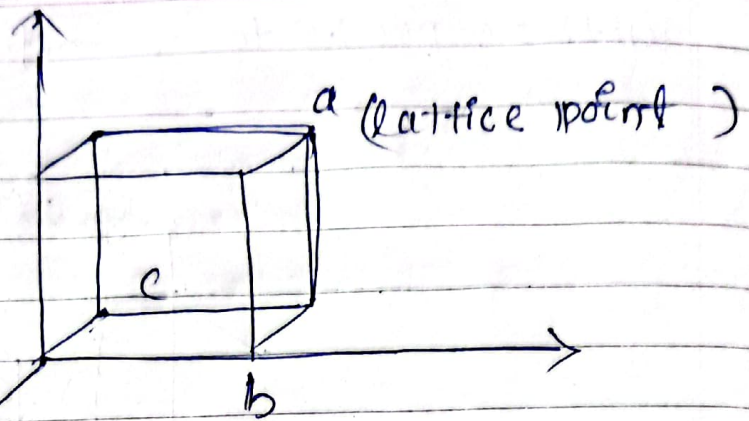 a (lattice point )
c
b